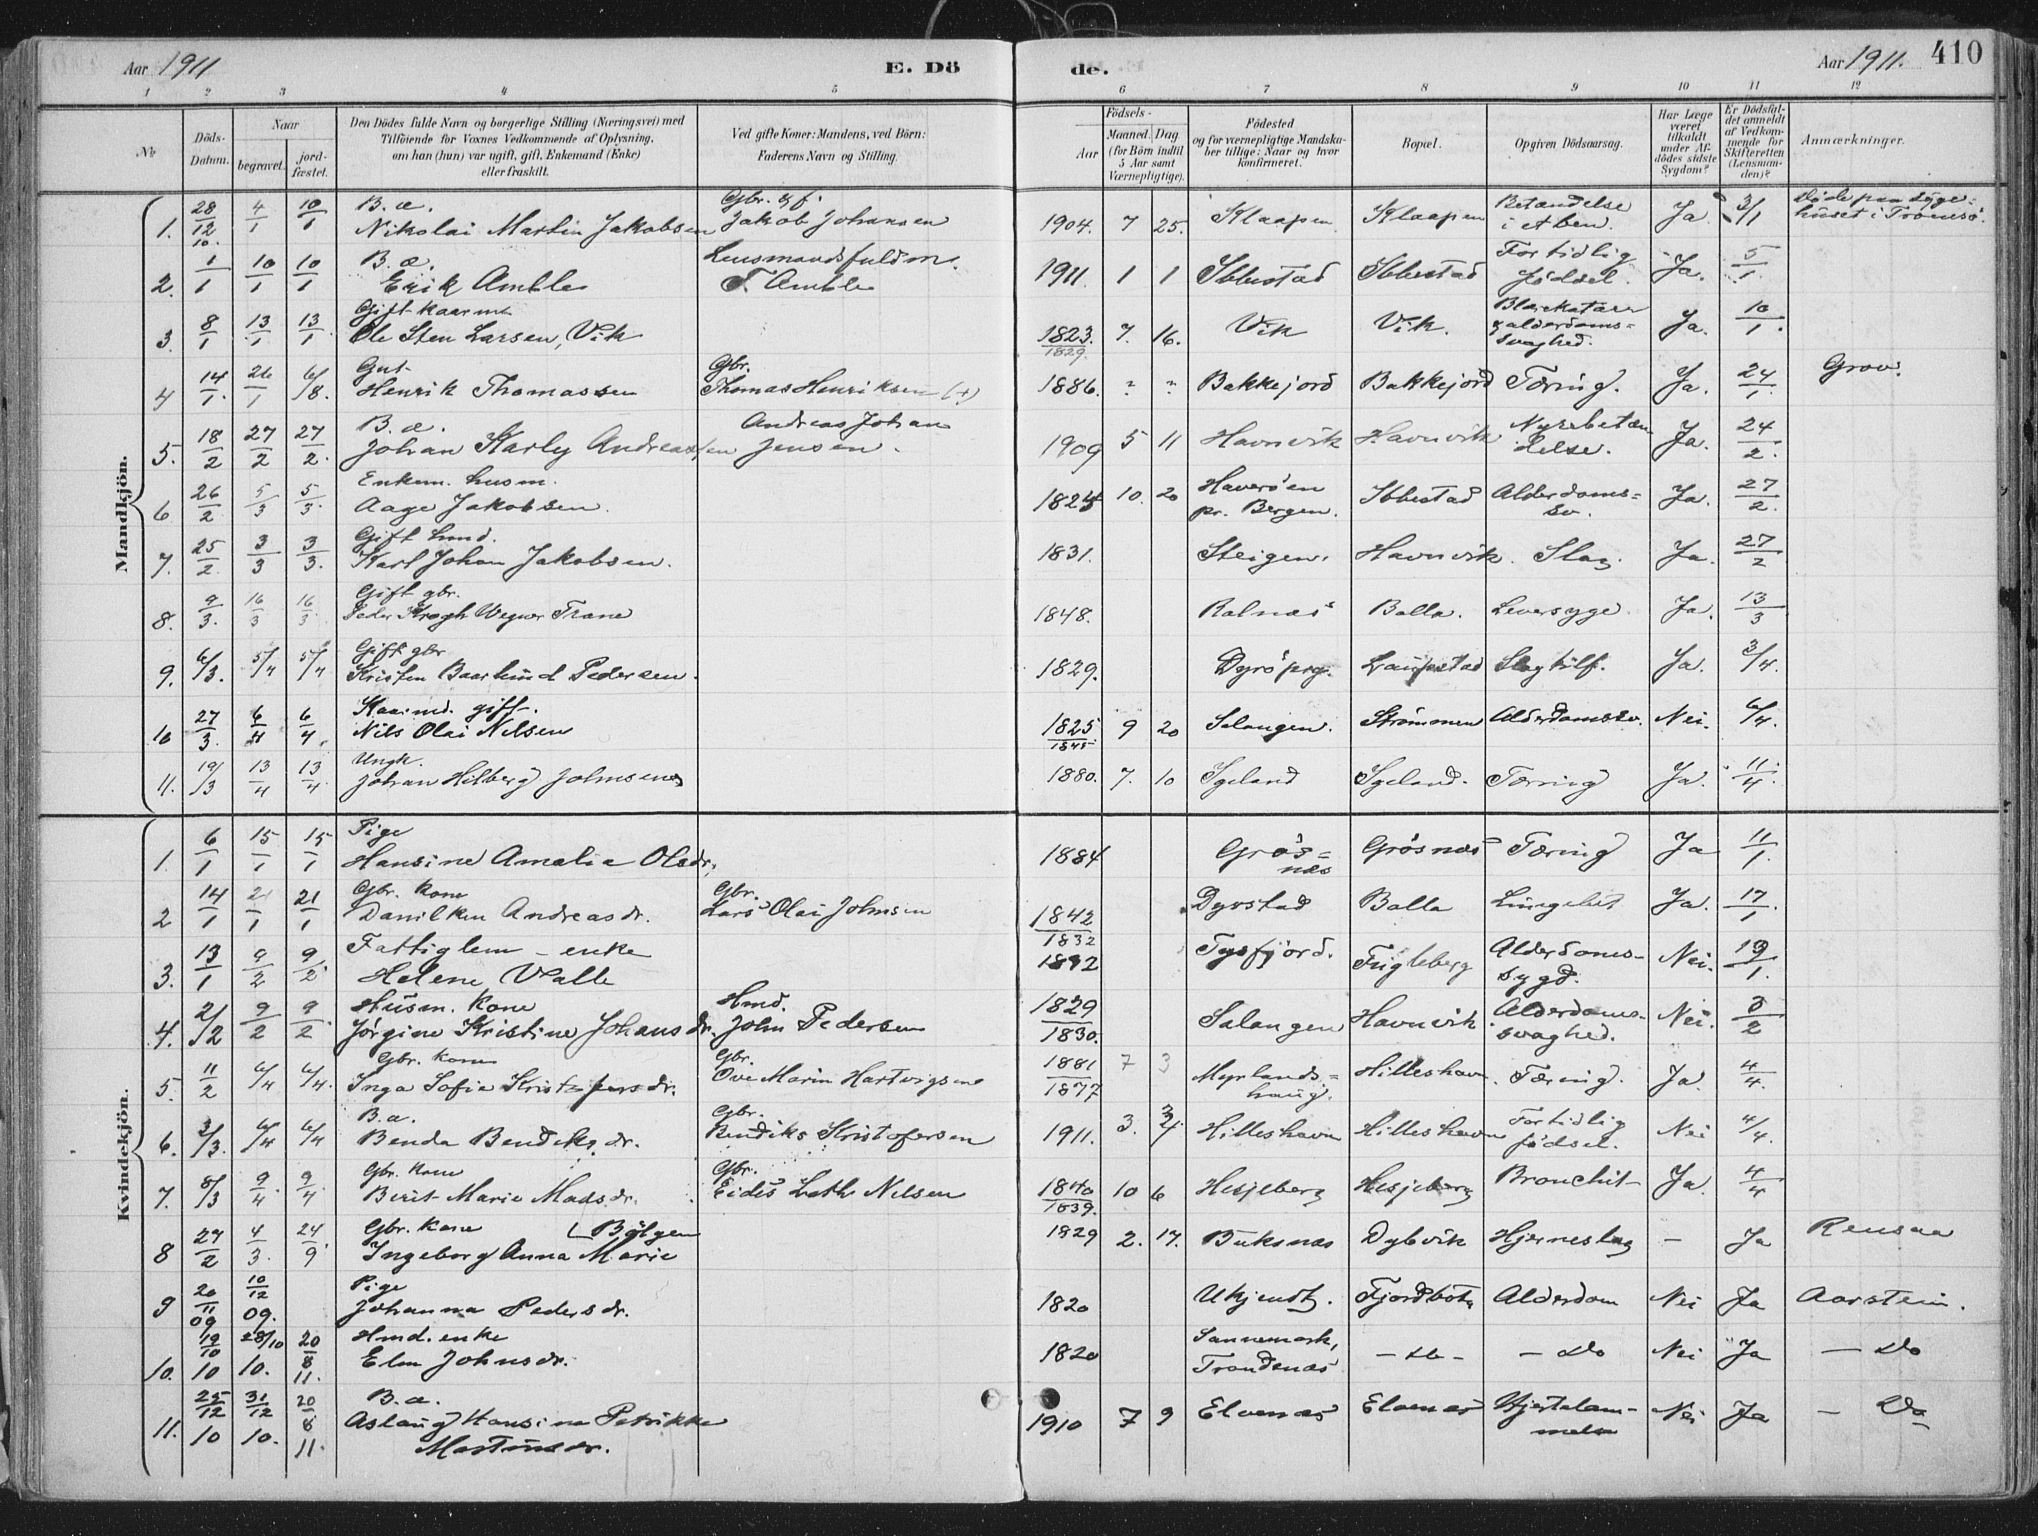 Aar 1911 E. Dö de. Aar 1911. 410
1 2 3 4 5 6 7 8 9 10 11 12
No Döds-Datum. Naar begravet. jord-fæstet.
Den Dödes fulde Navn og borgerlige Stilling (Næringsvei) med
Tilföiende for Voxnes Vedkommende af Oplysning,
om han (hun) var ugift, gift, Enkemand (Enke)
eller fraskilt.
Ved gifte Koner: Mandens, ved Börn:
Faderens Navn og Stilling.
Födsels-
Aar Maaned. Dag.
(for Börn indtil
5 Aar samt
Værnepligtige).
Födested
og for værnepligtige Mandska-
ber tillige: Naar og hvor
konfirmeret.
Bopæl.
Opgiven Dödsaarsag.
Har Læge
været
tilkaldt
under Af-
dödes sidste
Sygdom?
Er Dödsfal-
det anmeldt
af Vedkom-
mende for
Skifteretten
(Lensman-
den)?
Anmærkninger.
Mandkjön.
B. a. Gbr. & f. Betændelse Døde paa syge-
1. 28/12 10. 4/1 10/1 Nikolai Martin Jakobsen Jakob Johansen 1904. 7 25. Klaapen Klaapen i et ben. Ja 3/1 huset i Tromsö.
B. a. Lensmandsfuldm. For tidlig
2. 1/1 10/1 10/1 Erik Amble T. Amble 1911 1 1 Ibbestad Ibbestad födsel. Ja. 5/1.
Gift kaarm. Blærekatarr
3. 8/1 13/1 13/1 Ole Sten Larsen, Vik 1823. 1829. 7. 16. Vik Vik. & alderdoms-svaghed. Ja. 10/1.
Gut Gbr. Grov.
4 14/1. 26/1 6/8. Henrik Thomassen Thomas Henriksen (+) 1886. " " Bakkejord Bakkejord Tæring. Ja. 24/1.
B. a. Andreas Johan Nyrebetæn
5. 18/2 27/2 27/2. Johan Karly Andreassen Jensen. 1909 5 11 Havnvik Havnvik delse. Ja. 24/2.
Enkem. husm. Haverøen
6 26/2 5/3 5/3. Aage Jakobsen. 1824 10. 20 pr. Bergen. Ibbestad Alderdoms-sv. Ja. 27/2.
Gift hmd.
7. 25/2 3/3 3/3. Karl Johan Jakobsen. 1831. Steigen. Havnvik. Slag. Ja. 27/2
Gift gbr.
8. 9/3. 16/3 16/3. Peder Krogh Wegner Trane 1848. Kalnæs Balla. Leversyge. Ja. 13/3
Gift gbr
9. 6/3. 5/4 5/4 Kristen Baarlund Pedersen. 1829. Dyröprg. Laupstad Slagtilf. Ja. 3/4.
Kaarmd. gift.
10 27/3. 6/4 6/4. Nils Olai Nilsen 1825 1845 9 20 Salangen. Strömmen Alderdomssv. Nei. 6/4.
Ungk.
11. 19/3 13/4 13/4. Johan Hilberg Johnsen 1880. 7. 10 Igeland Igeland. Tæring Ja. 11/4.
Kvindekjön.
Pige
1. 6/1 15/1 15/1 Hansine Amalie Olsdr. 1884 Grös-næs Grösnæs Tæring Ja 11/1.
Gbr. kone Gbr.
2 14/1 21/1 21/1 Danilken Andreasdr. Lars Olai Johnsen 1842 1832 Dyrstad Balla Ja. 17/1.
Fattiglem - enke
3. 13/1 9/2 9/2. Helene Valle 1892 Tysfjord. Fugleberg Alderdoms-sygd. Nei. 19/1.
Husm. kone Hmd.
4. 2/2 9/2 9/2. Jörgine Kristine Johansdr. John Pedersen 1829 1830. Salangen Havnvik Alderdoms-svaghed. Nei. 8/2
Gbr. kone Gbr.
5. 11/2 6/4 6/4. Inga Sofie Kristofersdr. Ove Marin Hartvigsen 1881 1877 7 3 Myrlands-haug. Hilleshavn. Tæring. Ja. 4/4.
B. a. Gbr. For tidlig
6. 3/3. 6/4 6/4 Benda Bendiksdr. Bendiks Kristofersen 1911. 3. Hilleshavn Hilleshavn födsel. Nei 4/4.
Gbr. kone Gbr.
7. 8/3 9/4. 9/4 Berit Marie Madsdr. Eidis Lath Nilsen 1840 1839. 10 6 Hesjeberg Hesjeberg Bronchit Ja. 4/4
Gbr. kone Bölgen
8 27/2 4/3. 24/9 Ingeborg Anna Marie 1829 2. 17. Buksnæs Dybvik Hjerneslag - Ja Rensaa
Pige
9 20/11 09 10/12 09. Johanna Pedersdr. 1820 Ukjendt. Fjordbotn Alderdom Nei Ja Aarstein.
Hmd. enke Sannemark,
10. 19/10 10 28/10 10. 20/8 11. Elen Johnsdr. 1820 Trondenæs - do - - Do Nei Ja - Do
B. a.
11. 25/12 10 31/12 10. 20/8 11. Aslaug Hansine Petrikke 1910 7 9 Elvenæs Elvenæs Hjertelam-melse Nei Ja - Do
Martinsdr.